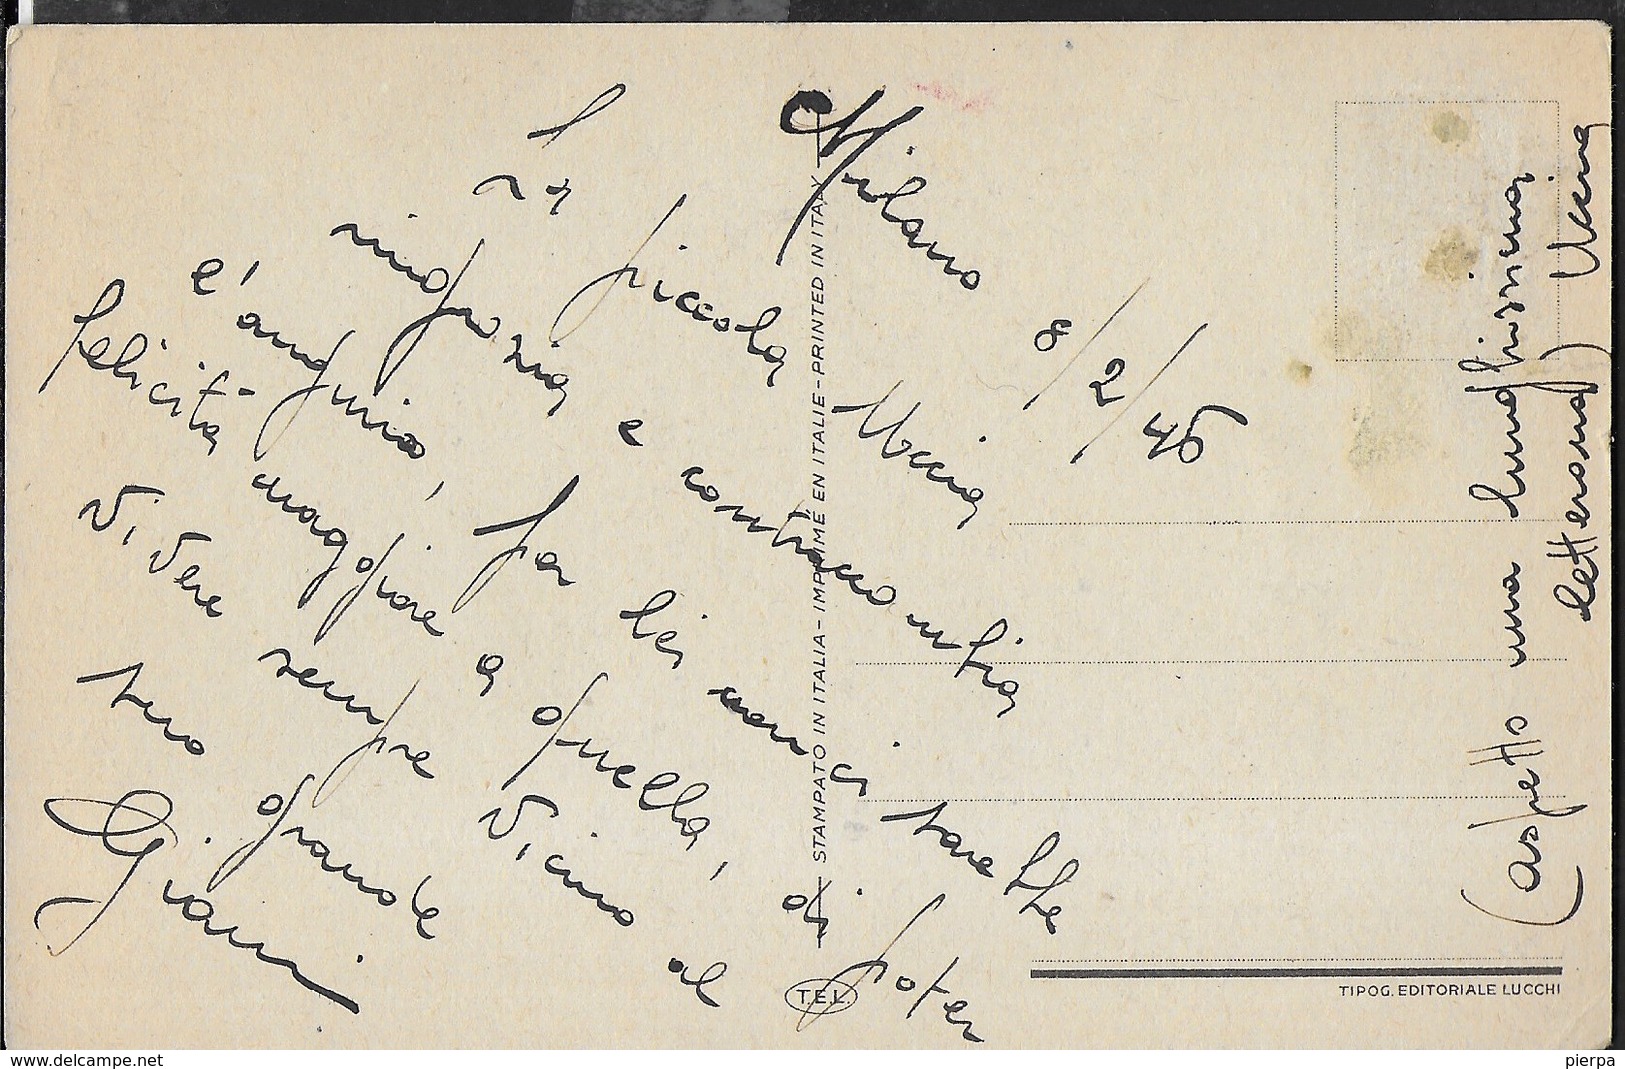 Milano 8/2/46
La piccola Ucia
ringrazia e contraccambia
l'augurio, per lei non ci sarebbe
felicità maggiore a quella, di poter
vivere sempre vicino al
suo grande
Gianni
(aspetto una lunghissima
letterona) Ucia
STAMPATO IN ITALIA - IMPRIMÉ EN ITALIE - PRINTED IN ITALY
T.E.L.
TIPOG. EDITORIALE LUCCHI
www.delcampe.net
pierpa